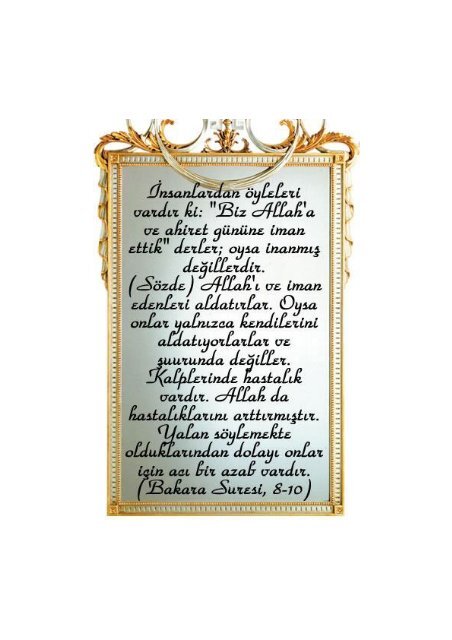 İnsanlardan öyleleri
vardır ki: "Biz Allah'a
ve ahiret gününe iman
ettik" derler; oysa inanmış
değillerdir.
(Sözde) Allah'ı ve iman
edenleri aldatırlar. Oysa
onlar yalnızca kendilerini
aldatıyorlarlar ve
şuurunda değiller.
Kalplerinde hastalık
vardır. Allah da
hastalıklarını arttırmıştır.
Yalan söylemekte
olduklarından dolayı onlar
için acı bir azab vardır.
(Bakara Suresi, 8-10)